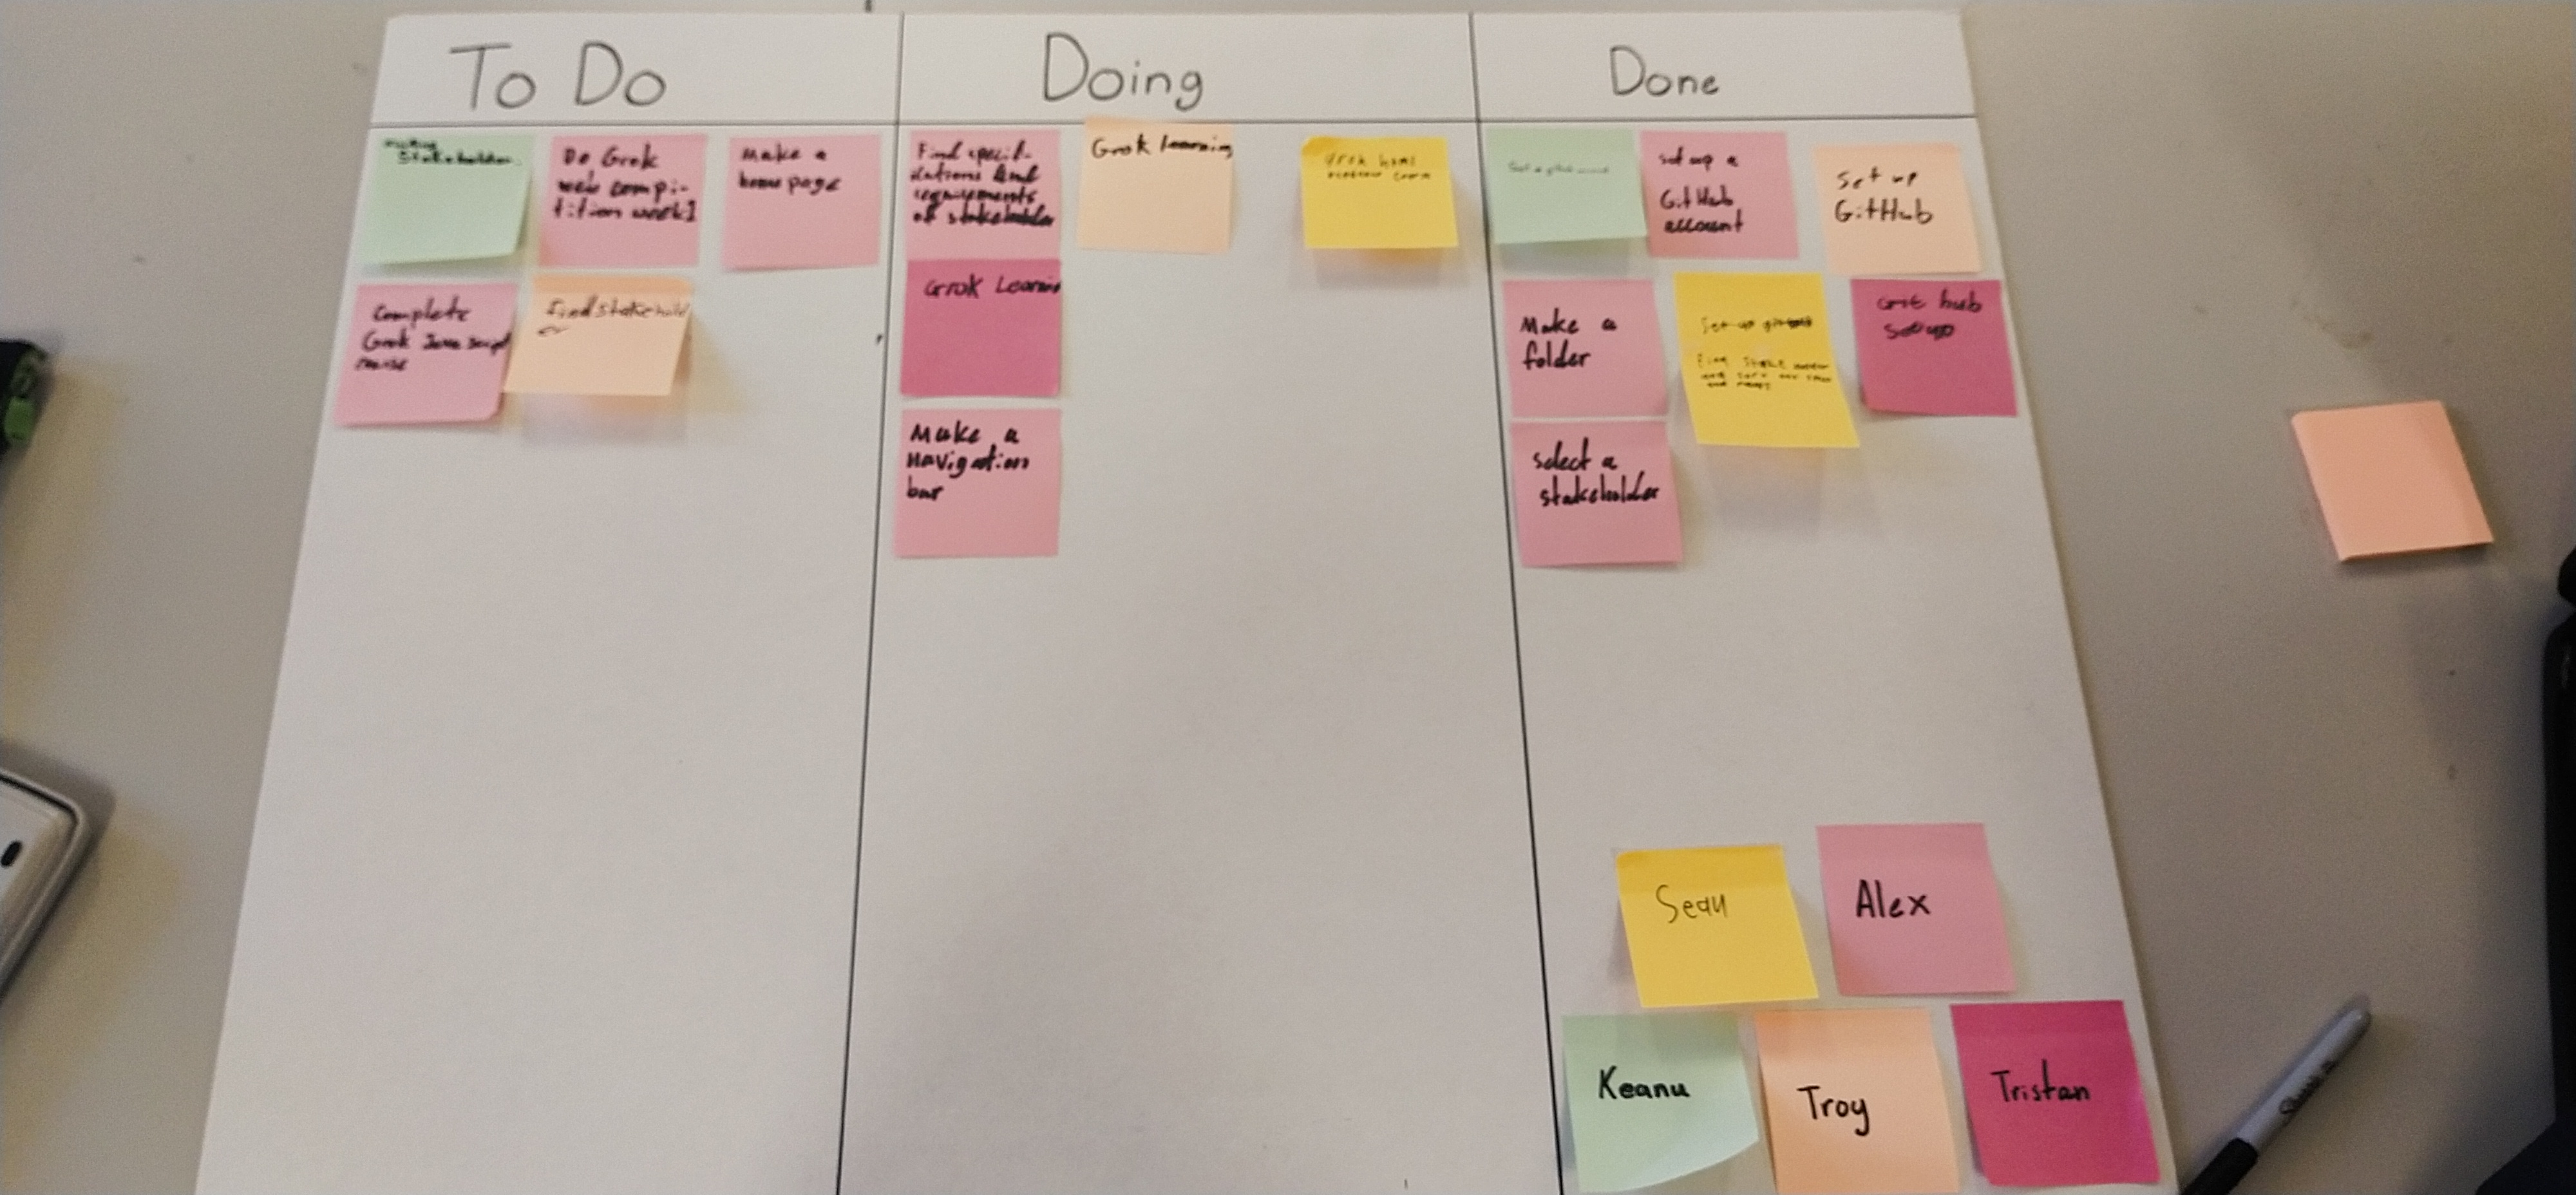 To Do
Doing
Done
Stakeholder
Do Grok
web compi-
tition week1
Make a
home page
Complete
Grok Java Script
find stakehold
er
Find specif-
ications and
requirements
of stakeholder
Grok learning
Grok Learnin
Make a
navigation
bar
set up a
GitHub
account
Set up
GitHub
Make a
folder
Set up
hub
set up
select a
stakeholder
Sean
Alex
Keanu
Troy
Tristan
Sharpie